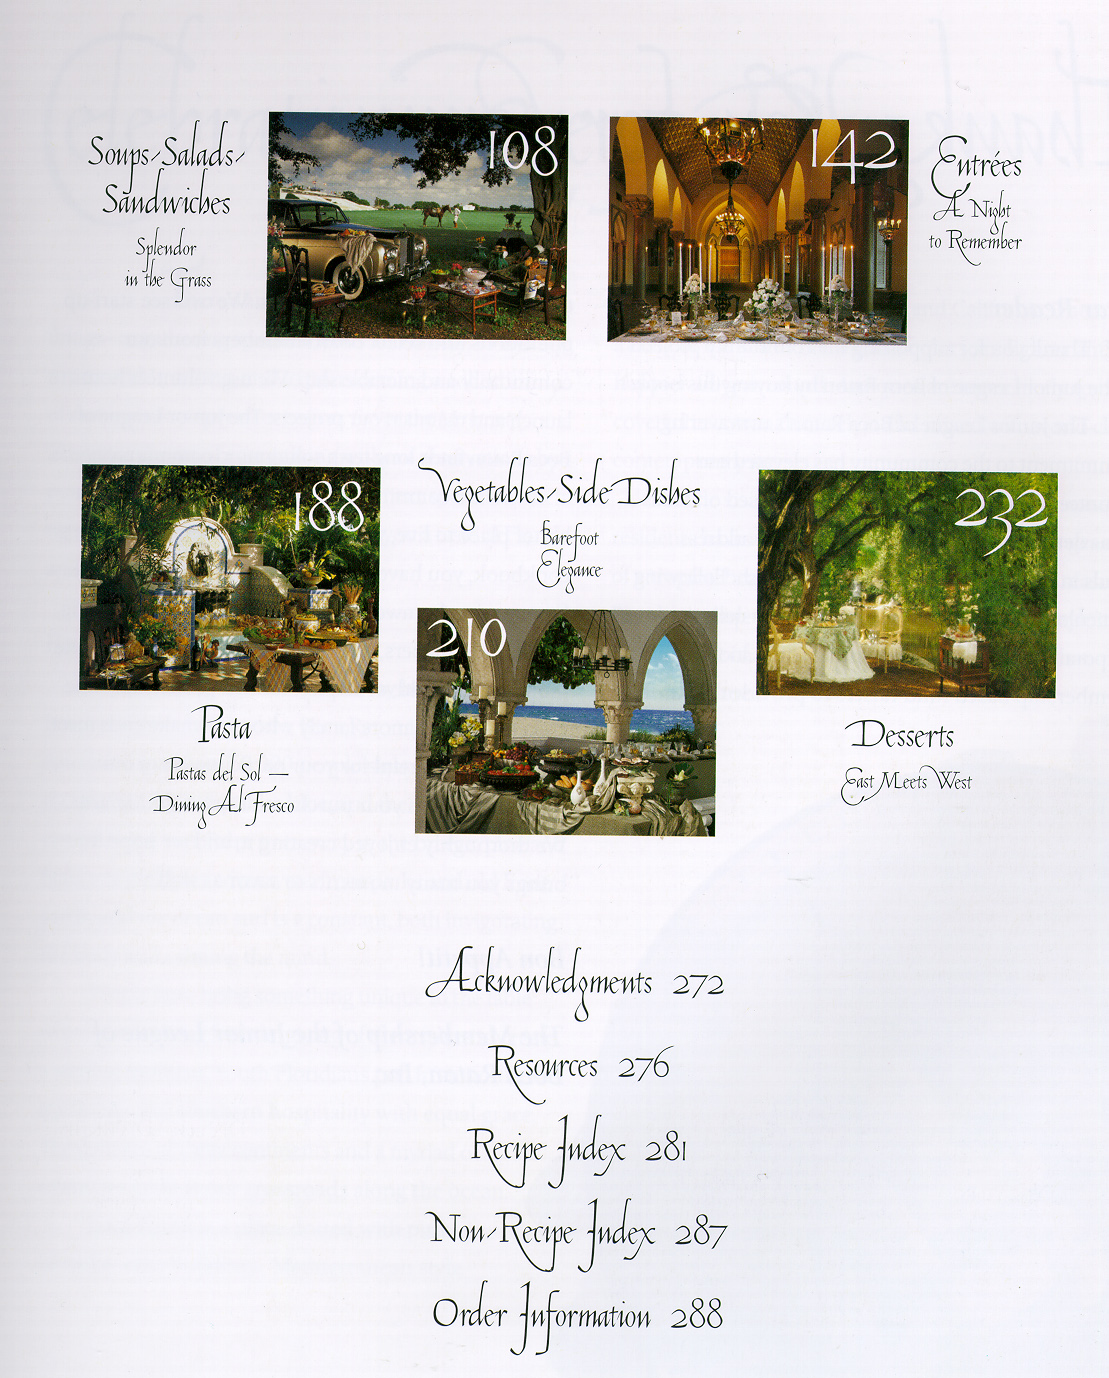 Soups-Salads-
Sandwiches
Splendor
in the Grass
108
142
Entrées
A Night
to Remember
188
Pasta
Pastas del Sol —
Dining Al Fresco
Vegetables-Side Dishes
Barefoot
Elegance
210
232
Desserts
East Meets West
Acknowledgments 272
Resources 276
Recipe Index 281
Non-Recipe Index 287
Order Information 288